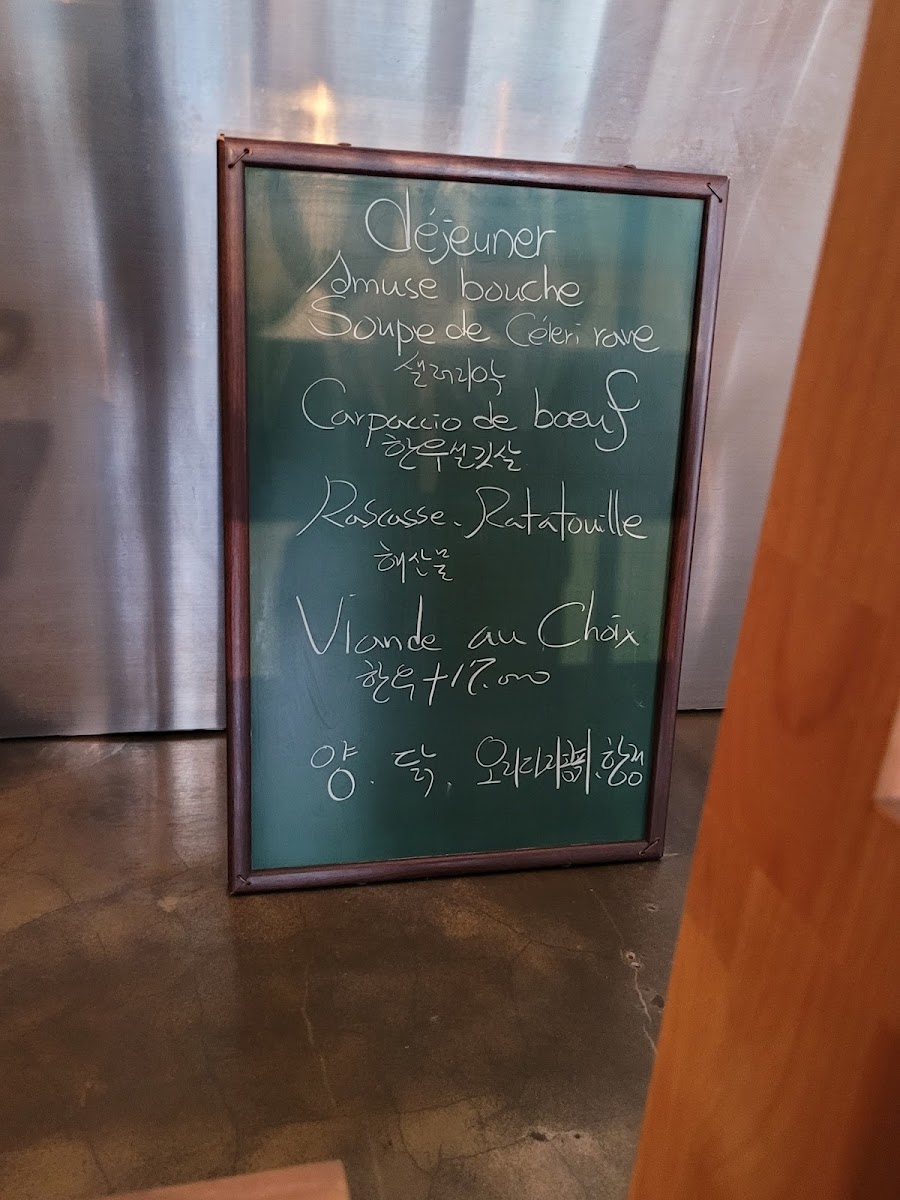 déjeuner
Amuse bouche
Soupe de Céleri rave
샐러리악
Carpaccio de boeuf
한우설깃살
Rascasse. Ratatouille
해산물
Viande au Choix
한우 +17.000
양. 닭. 오리다리콩피.항정